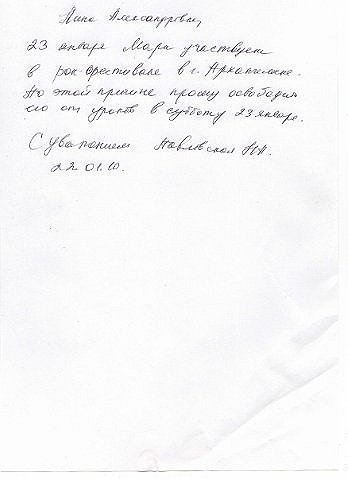 Нина Александровна
23 января Марк участвует
в рок-фестивале в г. Архангельске.
По этой причине прошу освободить
его от уроков в субботу 23 января.
С уважением Павловская Н.А.
22.01.10.